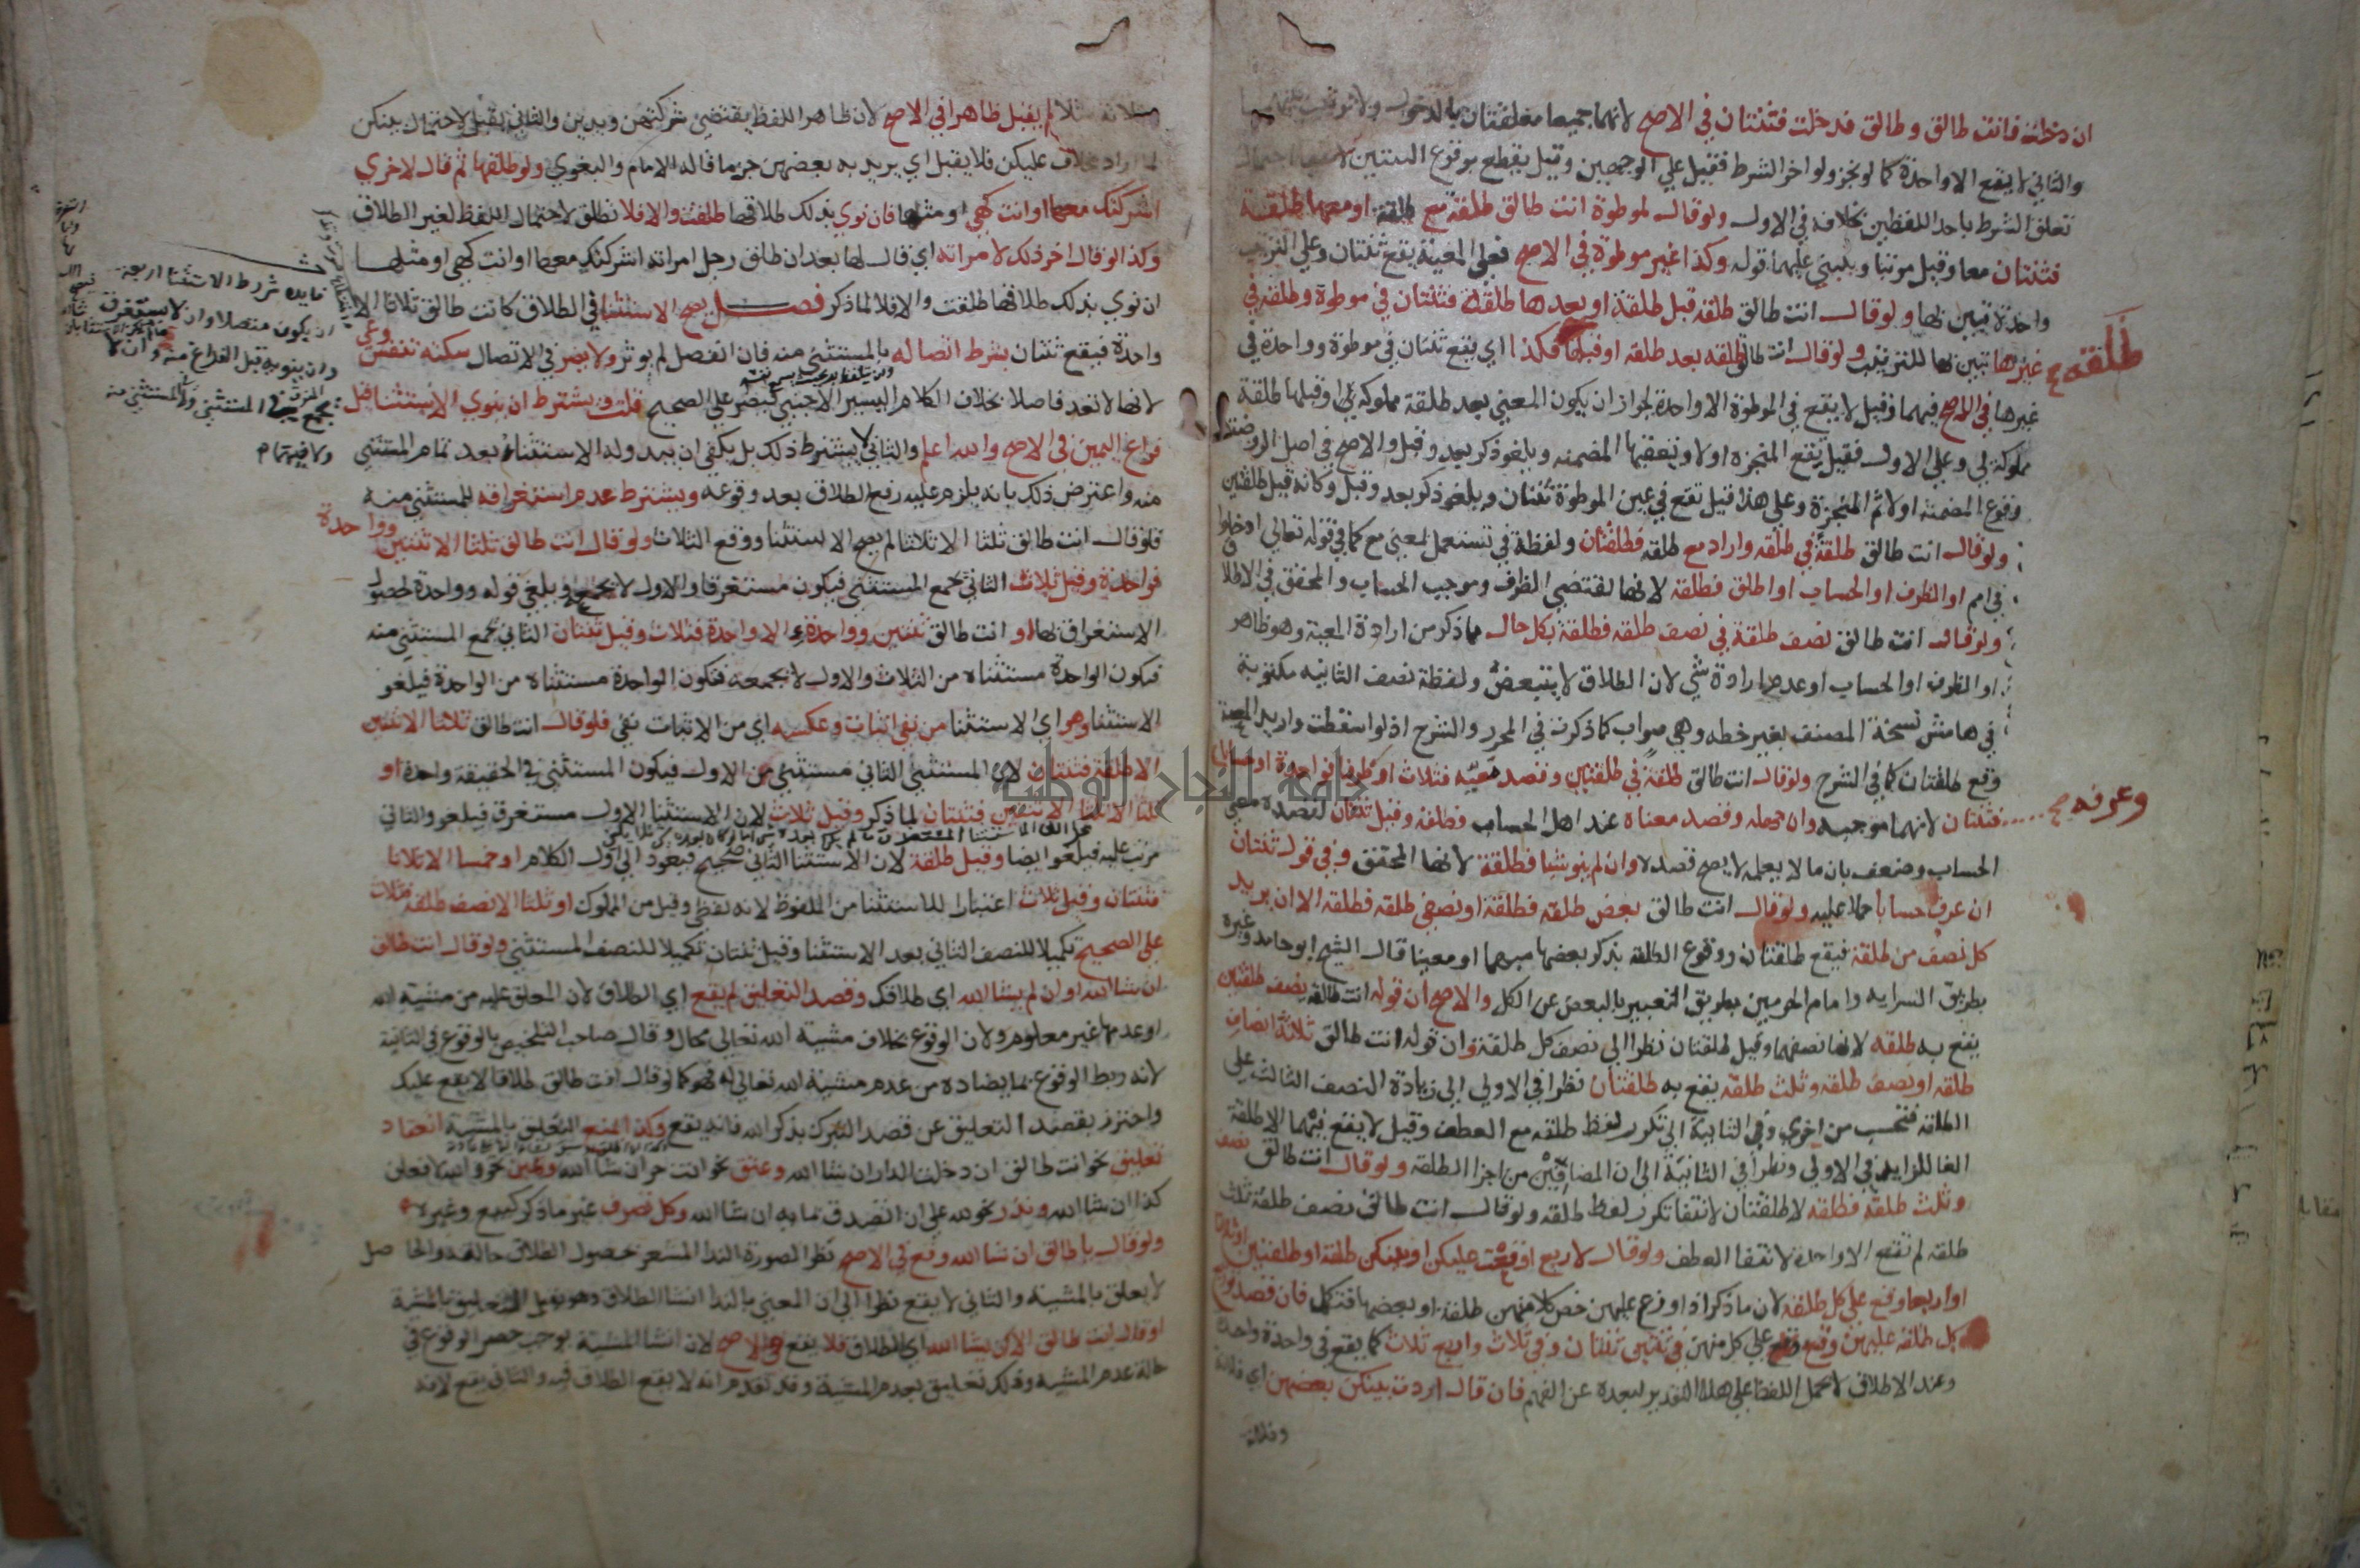 ان دخلت فانت طالق وطالق فدخلت فثنتان في الاصح لانهما جميعا معلقتان بالدخول ولا
والثاني لا يقع الا واحدة كما لو نجز ولو اخر الشرط فقيل علي الوجهين وقيل يقطع بوقوع الثنتين
تعلق الشرط باحد اللفظين بخلافه في الاول ولو قال لموطوة انت طالق طلقة مع طلقة او معها طلقة
فثنتان معا وقيل مرتبا ويلبني عليهما قوله وكذا غير موطوة في الاصح فعلي المعية يقع ثنتان وعلي الترتيب
واحدة تبين بها ولو قال انت طالق طلقة قبل طلقة او بعدها طلقة فثنتان في موطوة وطلقة في
طلقة صح
غيرها تبين بها للترتيب ولو قال انت طالق طلقة بعد طلقة او قبلها فكذا اي يقع ثنتان في موطوة وواحدة في
غيرها في الاصح فيهما وقيل لا يقع في الموطوة الا واحدة لجواز ان يكون المعني بعد طلقة مملوكة لي او قبلها طلقة
مملوكة لي وعلي الاول فقيل يقع المنجزه اولا وتعقبها المضمنه ويلغو ذكر بعد وقبل والاصح في اصل الروضة
وقوع المضمنه اولا ثم المنجزة وعلي هذا قيل تقع في غير الموطوة ثنتان ويلغو ذكر بعد وقبل وكانه قيل طلقتين
ولو قال انت طالق طلقة في طلقه واراد مع طلقه فطلقتان ولفظة في تستعمل لمعني مع كما في قوله تعالي ادخلوا
في امم او الظرف او الحساب او اطلق فطلقة لانها لمقتضي الظرف وموجب الحساب والمحقق في الاطلا
ق
ولو قال انت طالق نصف طلقة في نصف طلقه فطلقة بكل حال مما ذكر من ارادة المعية وهو ظاهر
او الظرف او الحساب او عدم ارادة شي لان الطلاق لا يتبعض ولفظة نصف الثانيه مكتوبة
في هامش نسخة المصنف بغير خطه وهي صواب كما ذكرت في المحرر والشرح اذ لو اسقطت واريد المعية
وقع طلقتان كما في الشرح ولو قال انت طالق طلقة في طلقتين وقصد معيه فثلاث او ظرفا فواحدة او حسابا
وعرفه صح
فثنتان لانهما موجبه وان جهله وقصد معناه عند اهل الحساب فطلقة وقيل ثنتان لقصده معني
الحساب وضعف بان ما لا يعلمه لا يصح قصده وان لم ينو شيا فطلقة لانها المحقق وفي قول ثنتان
ان عرف حسابا حملا عليه ولو قال انت طالق بعض طلقه فطلقة او نصفي طلقه فطلقه الا ان يريد
كل نصف من طلقة فيقع طلقتان ووقوع الطلقة بذكر بعضها مبهما او معينا قال الشيخ ابو حامد وغيره
بطريق السراية وامام الحرمين بطريق التعبير بالبعض عن الكل والاصح ان قوله انت طالق نصف طلقتين
يقع به طلقه لانها نصفهما وقيل طلقتان نظرا الي نصف كل طلقة وان قوله انت طالق ثلاثة انصاف
طلقه او نصف طلقه وثلث طلقه يقع به طلقتان نظرا في الاولي الي زيادة النصف الثالث علي
الطلقه فتحسب من اخري وفي الثانية الي تكرر لفظ طلقه مع العطف وقيل لا يقع فيهما الا طلقة
الغا للزايد في الاولي ونظرا في الثانية الي ان المضافين من اجزا الطلقه ولو قال انت طالق نصف
وثلث طلقه فطلقه لا طلقتان لانتفا تكرر لفظ طلقه ولو قال انت طالق نصف طلقة ثلث
طلقه لم تقع الا واحدة لانتفا العطف ولو قال لاربع اوقعت عليكن او بينكن طلقة او طلقتين او ثلاثا
او اربعا وقع علي كل طلقة لان ما ذكر اذا وزع عليهن خص كلا منهن طلقة او بعضها فتكمل فان قصد توزيع
كل طلقة عليهن وقع علي كل منهن في ثنتين ثنتان وفي ثلاث واربع ثلاث كما يقع في واحدة واحدة
وعند الاطلاق لا يحمل اللفظ علي هذا التقدير لبعده عن الفهم فان قال اردت بينكن بعضهن اي فلانة
وفلانة
مثلا لم يقبل ظاهرا في الاصح لان ظاهر اللفظ يقتضي شركتهن ويدين والثاني يقبل لاحتمال بينكن
لما اراد بخلاف عليكن فلا يقبل اي يريد به بعضهن جزما قاله الامام والبغوي ولو طلقها ثم قال لاخري
اشركتك معها او انت كهي او مثلها فان نوي بذلك طلاقها طلقت والا فلا تطلق لاحتمال اللفظ لغير الطلاق
وكذا لو قال اخر ذلك لامراته اي قال لها بعد ان طلق رجل امراته اشركتك معها او انت كهي او مثلها
ان نوي بذلك طلاقها طلقت والا فلا لما ذكر فصل يصح الاستثنا في الطلاق كانت طالق ثلاثا الا
واحدة فيقع ثنتان بشرط اتصاله بالمستثني منه فان انفصل لم يوثر ولا يضر في الاتصال سكتة تنفس وعي
لانها لا تعد فاصلا بخلاف الكلام اليسير الاجنبي فيضر علي الصحيح قلت ويشترط ان ينوي الاستثنا قبل
فراغ اليمين في الاصح والله اعلم والثاني لا يشترط ذلك بل يكفي ان يبدو له الاستثنا بعد تمام المستثني
منه واعترض ذلك بانه يلزم عليه رفع الطلاق بعد وقوعه ويشترط عدم استغراقه للمستثني منه
فلو قال انت طالق ثلثا الا ثلاثا لم يصح الاستثنا ووقع الثلاث ولو قال انت طالق ثلثا الا ثنتين وواحدة
فواحدة وقيل ثلاث الثاني يجمع المستثني فيكون مستغرقا والاول لا يجمع ويلغي قوله وواحدة لحصول
الاستغراق بها او انت طالق ثنتين وواحدة الا واحدة فثلاث وقيل ثنتان الثاني يجمع المستثني منه
فتكون الواحدة مستثناه من الثلاث والاول لا يجمعه فتكون الواحدة مستثناه من الواحدة فيلغو
الاستثنا وهو اي الاستثنا من نفي اثبات وعكسه اي من الاثبات نفي فلو قال انت طالق ثلاثا الا ثنتين
الا طلقة فثنتان لان المستثني الثاني مستثني من الاول فيكون المستثني في الحقيقة واحدة او
ثلثا الا ثلثا الا ثنتين فثنتان لما ذكر وقيل ثلاث لان الاستثنا الاول مستغرق فيلغو والثاني
مرتب عليه فيلغو ايضا وقيل طلقة لان الاستثنا الثاني صحيح فيعود الي اول الكلام او خمسا الا ثلاثا
فثنتان وقيل ثلاث اعتبارا للاستثنا من الملفوظ لانه لفظي وقيل من المملوك او ثلثا الا نصف طلقة فثلاث
علي الصحيح تكميلا للنصف الثاني بعد الاستثنا وقيل ثنتان تكميلا للنصف المستثني ولو قال انت طالق
ان شا الله او ان لم يشا الله اي طلاقك وقصد التعليق لم يقع اي الطلاق لان المعلق عليه من مشية الله
او عدمها غير معلوم ولان الوقوع بخلاف مشية الله تعالي محال وقال صاحب التلخيص بالوقوع في الثانية
لانه ربط الوقوع بما يضاده من عدم مشية الله تعالي له فهو كما لو قال انت طالق طلاقا لا يقع عليك
واحترز بقصد التعليق عن قصد التبرك بذكر الله فانه يقع وكذا يمنع التعليق بالمشية انعقاد
تعليق نحو انت طالق ان دخلت الدار ان شا الله وعتق نحو انت حر ان شا الله ويمين نحو والله لا فعلن
كذا ان شا الله ونذر نحو لله علي ان اتصدق بماية ان شا الله وكل تصرف غير ما ذكر كبيع وغيره
ولو قال يا طالق ان شا الله وقع في الاصح نظرا لصورة الندا المشعر بحصول الطلاق حالته والحاصل
لا يعلق بالمشية والثاني لا يقع نظرا الي ان المعني بالندا انشا الطلاق وهو يقبل التعليق بالمشية
او قال انت طالق الا ان يشا الله اي الطلاق فلا يقع في الاصح لان استثنا المشية يوجب حصر الوقوع في
حالة عدم المشية وذلك تعليق بعدم المشية وقد تقدم انه لا يقع الطلاق فيه والثاني يقع لانه
فايده شروط الاستثنا اربعة
ان يكون متصلا وان لا يستغرق
وان ينويه قبل الفراغ منه وان لا
يجمع المستثني ولا المستثني منه
مقابلة
جامعة النجاح الوطنية